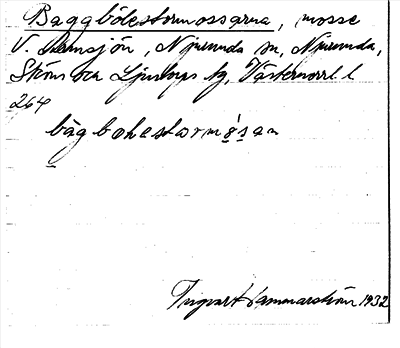 Baggbölestormossarna, mosse
V. Lemsjön, Njurunda sn, Njurunda,
Sköns och Ljustorps tg, Västernorrl l
264
bàgbohestormo̊san
Ingvart Hammarström 1932